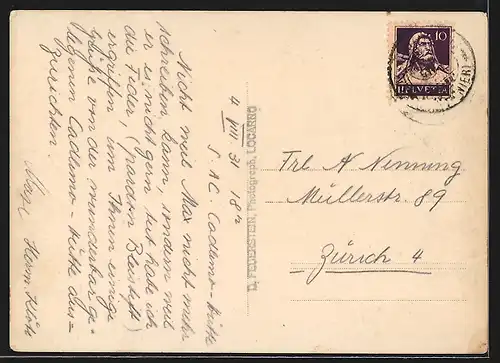 4 VIII 31 18 h
S AC. Cadlimo-hütte
Nicht weil Max nicht mehr
schreiben kann, sondern weil
er es nicht gern tut habe ich
die Feder, (pardon Bleistift)
ergriffen um Ihnen einige
Grüße von der wunderbar ge-
legenen Cadlimo-hütte aus-
zurichten.
Max Herm. Klöti
D. FEUERSTEIN, Photograph, LOCARNO
10
HELVETIA
Frl A Nennung
Müllerstr. 89
Zürich 4